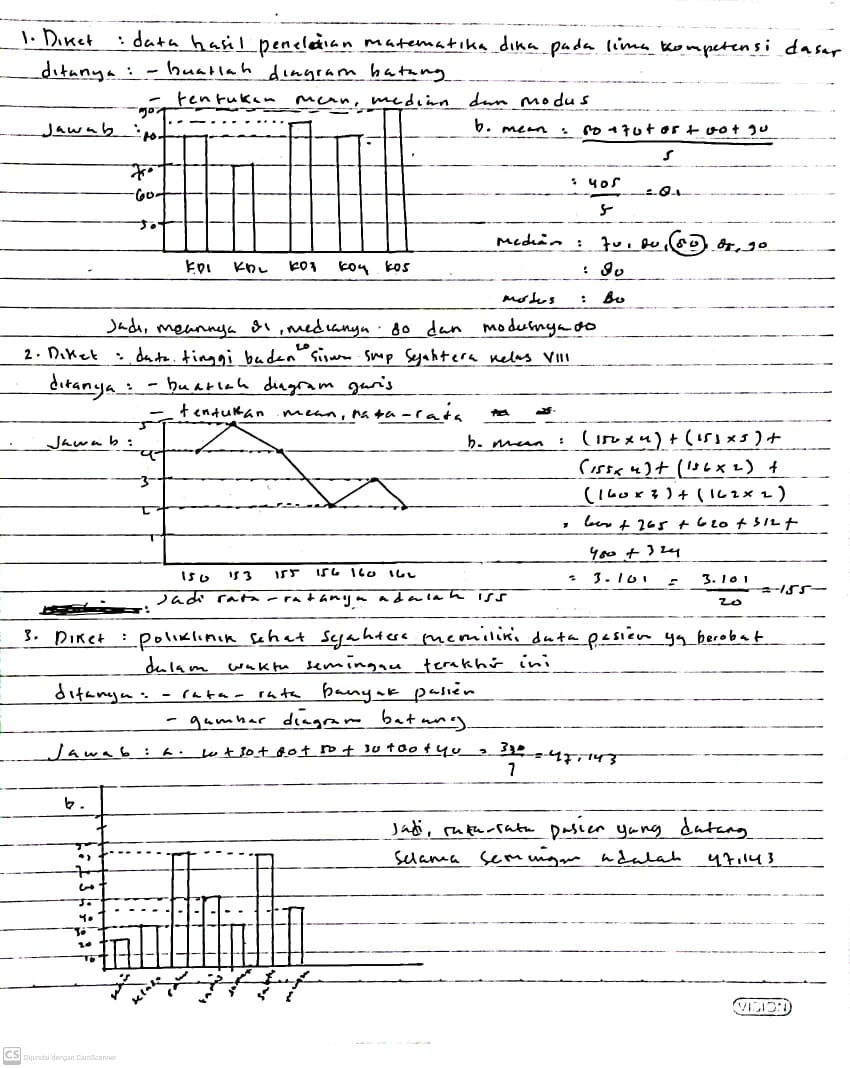 1. Diket : data hasil penelitian matematika dika pada lima kompetensi dasar
ditanya : - buatlah diagram batang
- tentukan mean, median dan modus
Jawab :
90
80
70
60
50
KD1 KD2 KD3 KD4 KD5
b. mean : 80 + 70 + 85 + 80 + 90
5
: 405
5
= 81
median : 70, 80, 80, 85, 90
: 80
modus : 80
Jadi, meannya 81, medianya 80 dan modusnya 80
2. Diket : data tinggi badan 20 siswa smp sejahtera kelas VIII
ditanya : - buatlah diagram garis
- tentukan mean, rata-rata
Jawab :
5
4
3
2
1
150 153 155 156 160 162
b. mean : (150 x 4) + (153 x 5) +
(155 x 4) + (156 x 2) +
(160 x 3) + (162 x 2)
= 600 + 765 + 620 + 312 +
480 + 324
= 3.101 = 3.101
20
= 155
: Jadi rata-ratanya adalah 155
3. Diket : poliklinik sehat sejahtera memiliki data pasien yg berobat
dalam waktu seminggu terakhir ini
ditanya : - rata-rata banyak pasien
- gambar diagram batang
Jawab : a. 20 + 30 + 80 + 50 + 30 + 80 + 40 = 330
7
= 47,143
b.
50
40
30
20
10
senin selasa rabu kamis jumat sabtu minggu
Jadi, rata-rata pasien yang datang
selama seminggu adalah 47,143
VISION
CS Dipindai dengan CamScanner